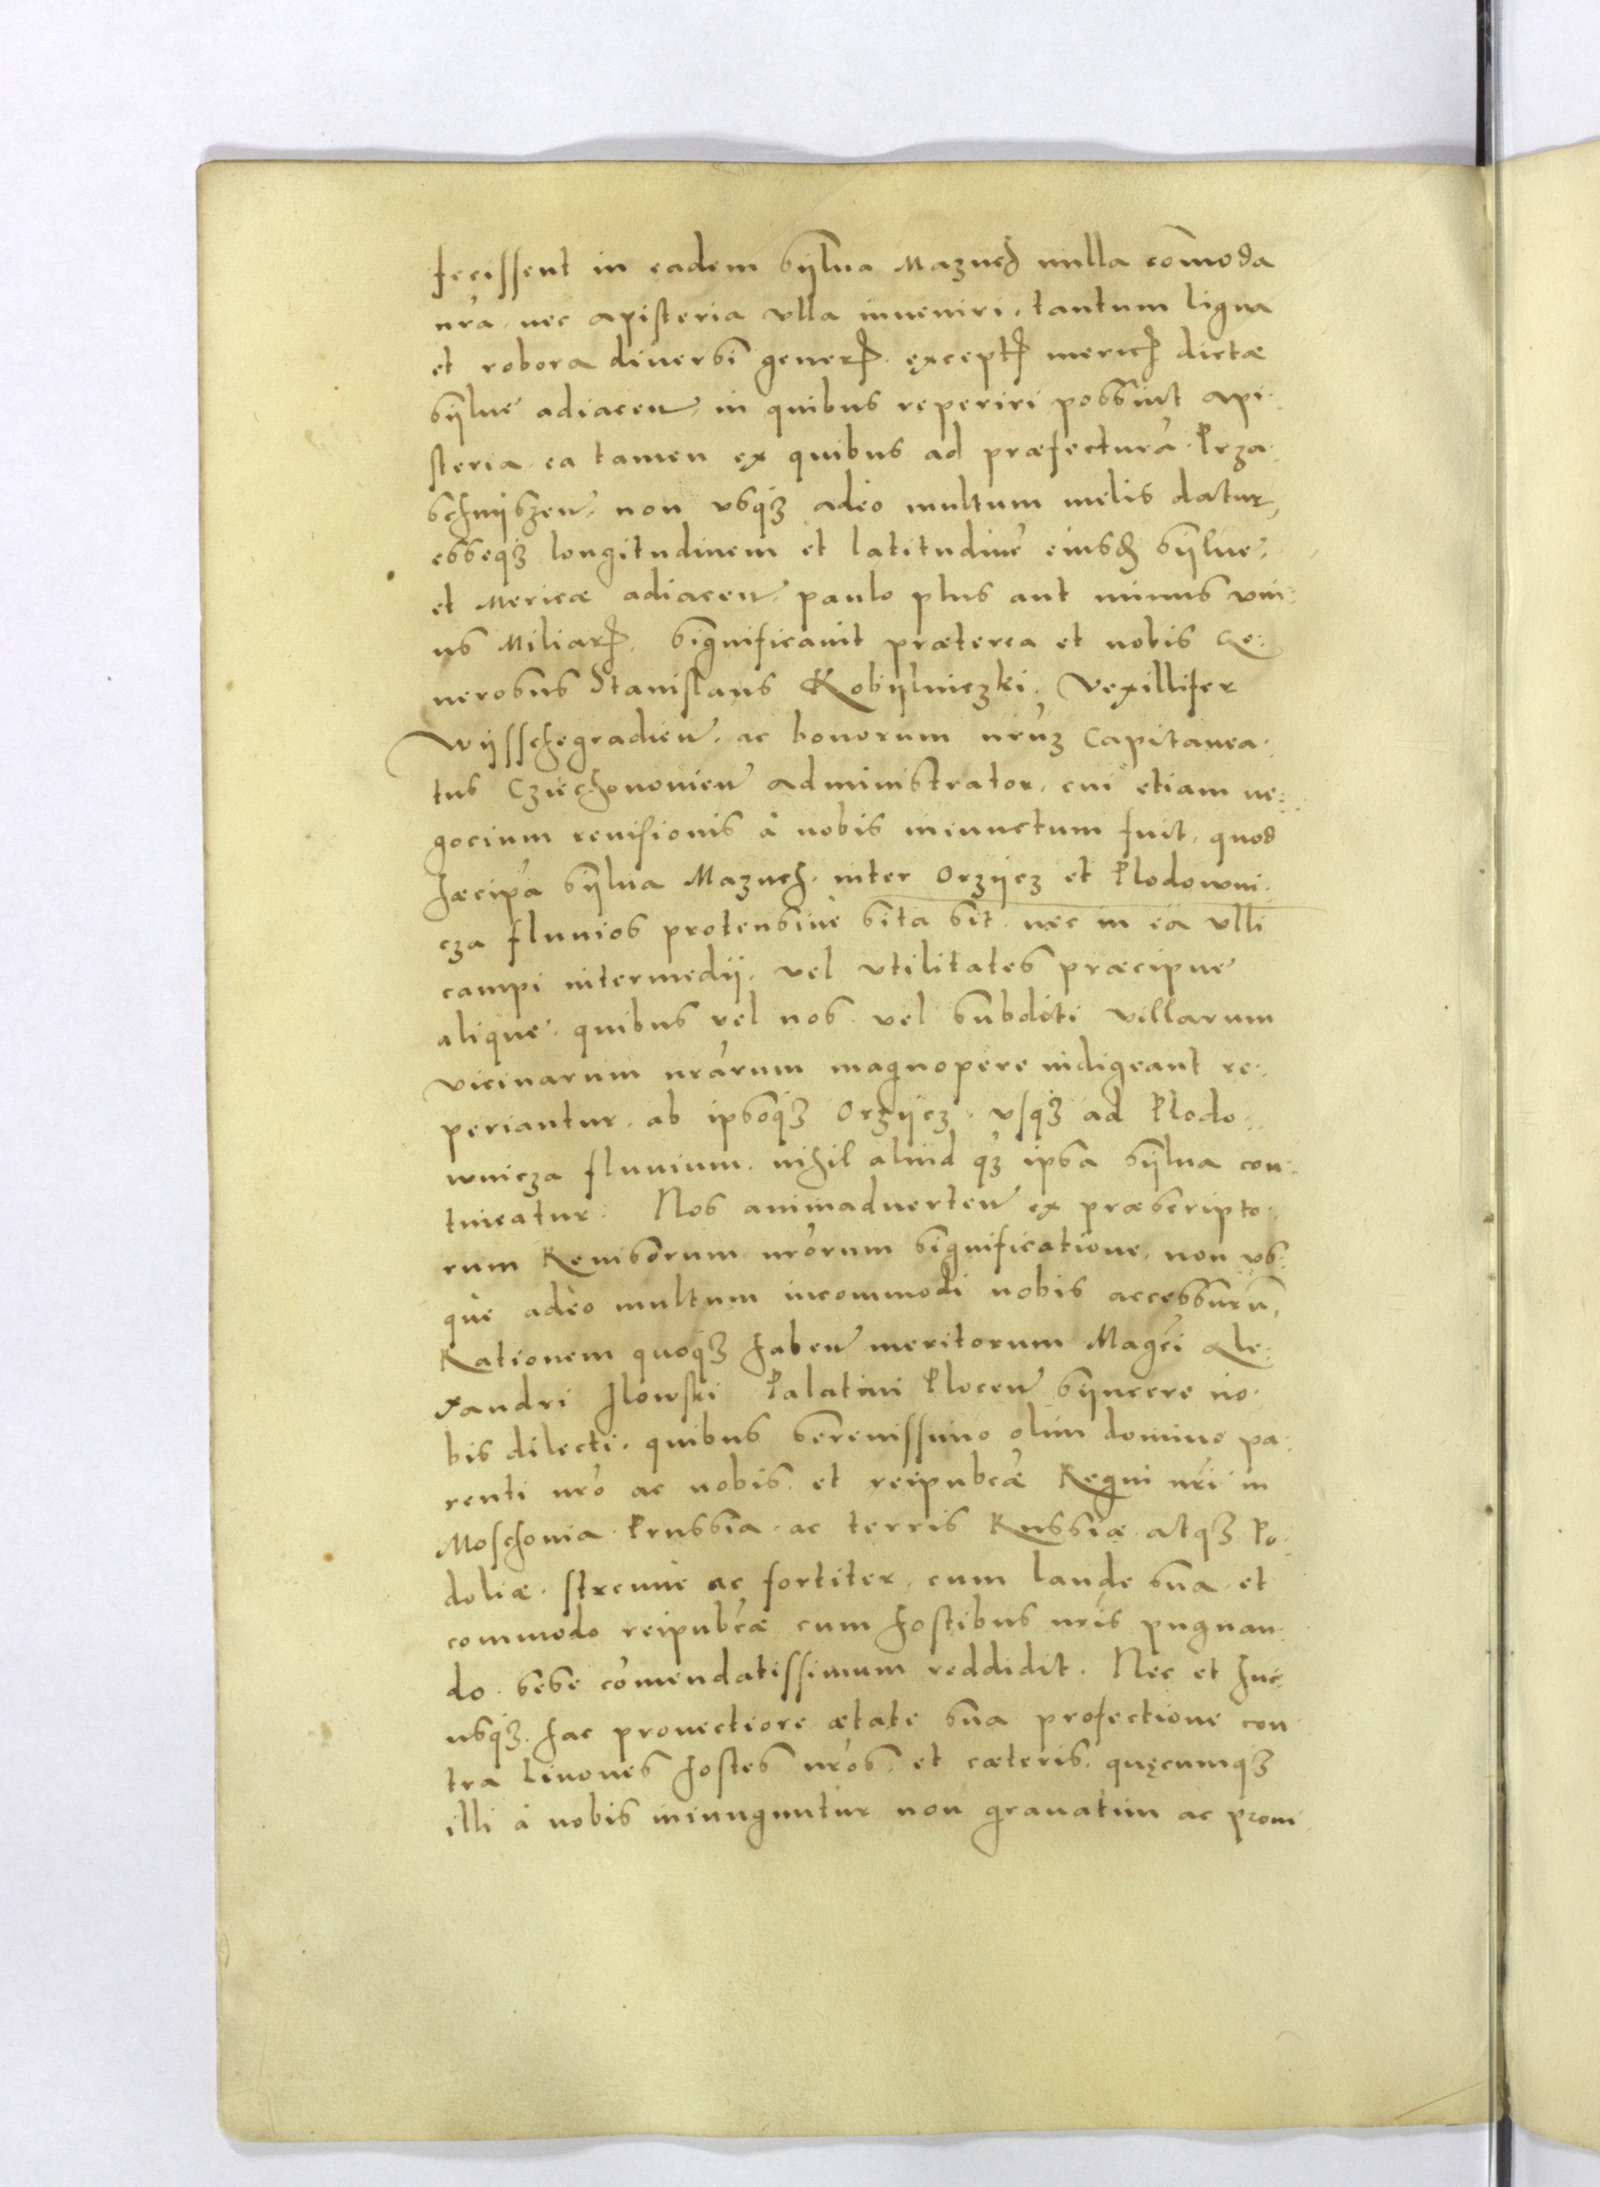 fecissent in eadem sÿlua Mazuch nulla com̃oda
nr̃a, nec apisteria vlla inueniri, tantum ligna
et robora diuersi gener̃, except̃ meric̃ dictæ
sÿlue adiaceñ, in quibus reperiri possunt api-
steria, ea tamen ex quibus ad præfecturã Prza-
schnÿszeñ, non vsq3 adeo multum mellis datur,
esseq3 longitudinem et latitudinẽ eiusd̃ sÿlue,
et Mericæ adiaceñ, paulo plus aut minus vni-
us Miliar̃. Significauit præterea et nobis Ge-
nerosus Stanislaus Kobÿlniczki, Vexillifer
Wÿsschegradieñ, ac bonorum nr̃or3 Capitanea-
tus Cziechonouieñ Administrator, cui etiam ne-
gocium reuisionis à nobis iniunctum fuit, quod
hæc ip̃a sÿlua Mazuch, inter Orzÿcz et Plodowni-
cza fluuios protensiuè sita sit, nec in ea vlli
campi intermedii, vel vtilitates præcipue
alique, quibus vel nos, vel subditi villarum
vicinarum nr̃arum magnopere indigeant re-
periantur, ab ipsoq3 Orzÿcz, vsq3 ad Plodo-
wnicza fluuium, nihil aliud q3 ipsa sÿlua con-
tineatur. Nos animaduerteñ ex præscripto-
rum Reuisorum nr̃orum significatione, non vs-
que adeò multum incommodi nobis accessurũ,
Rationem quoq3 habeñ meritorum Mag̃ci Ale-
xandri Ilowski Palatini Ploceñ sÿncere no-
bis dilecti, quibus serenissimo olim domino pa-
renti nr̃o ac nobis, et reipub̃cæ Regni nr̃i in
Moschouia, Prussia, ac terris Russiæ, atq3 Po-
doliæ, strenuè ac fortiter, cum laude sua, et
commodo reipub̃cæ cum hostibus nr̃is pugnan-
do, sese com̃endatissimum reddidit. Nec et huc-
usq3, hac prouectiore ætate sua profectione con-
tra Liuones hostes nr̃os, et cæteris, quęcumq3
illi à nobis iniunguntur non grauatim ac prom-